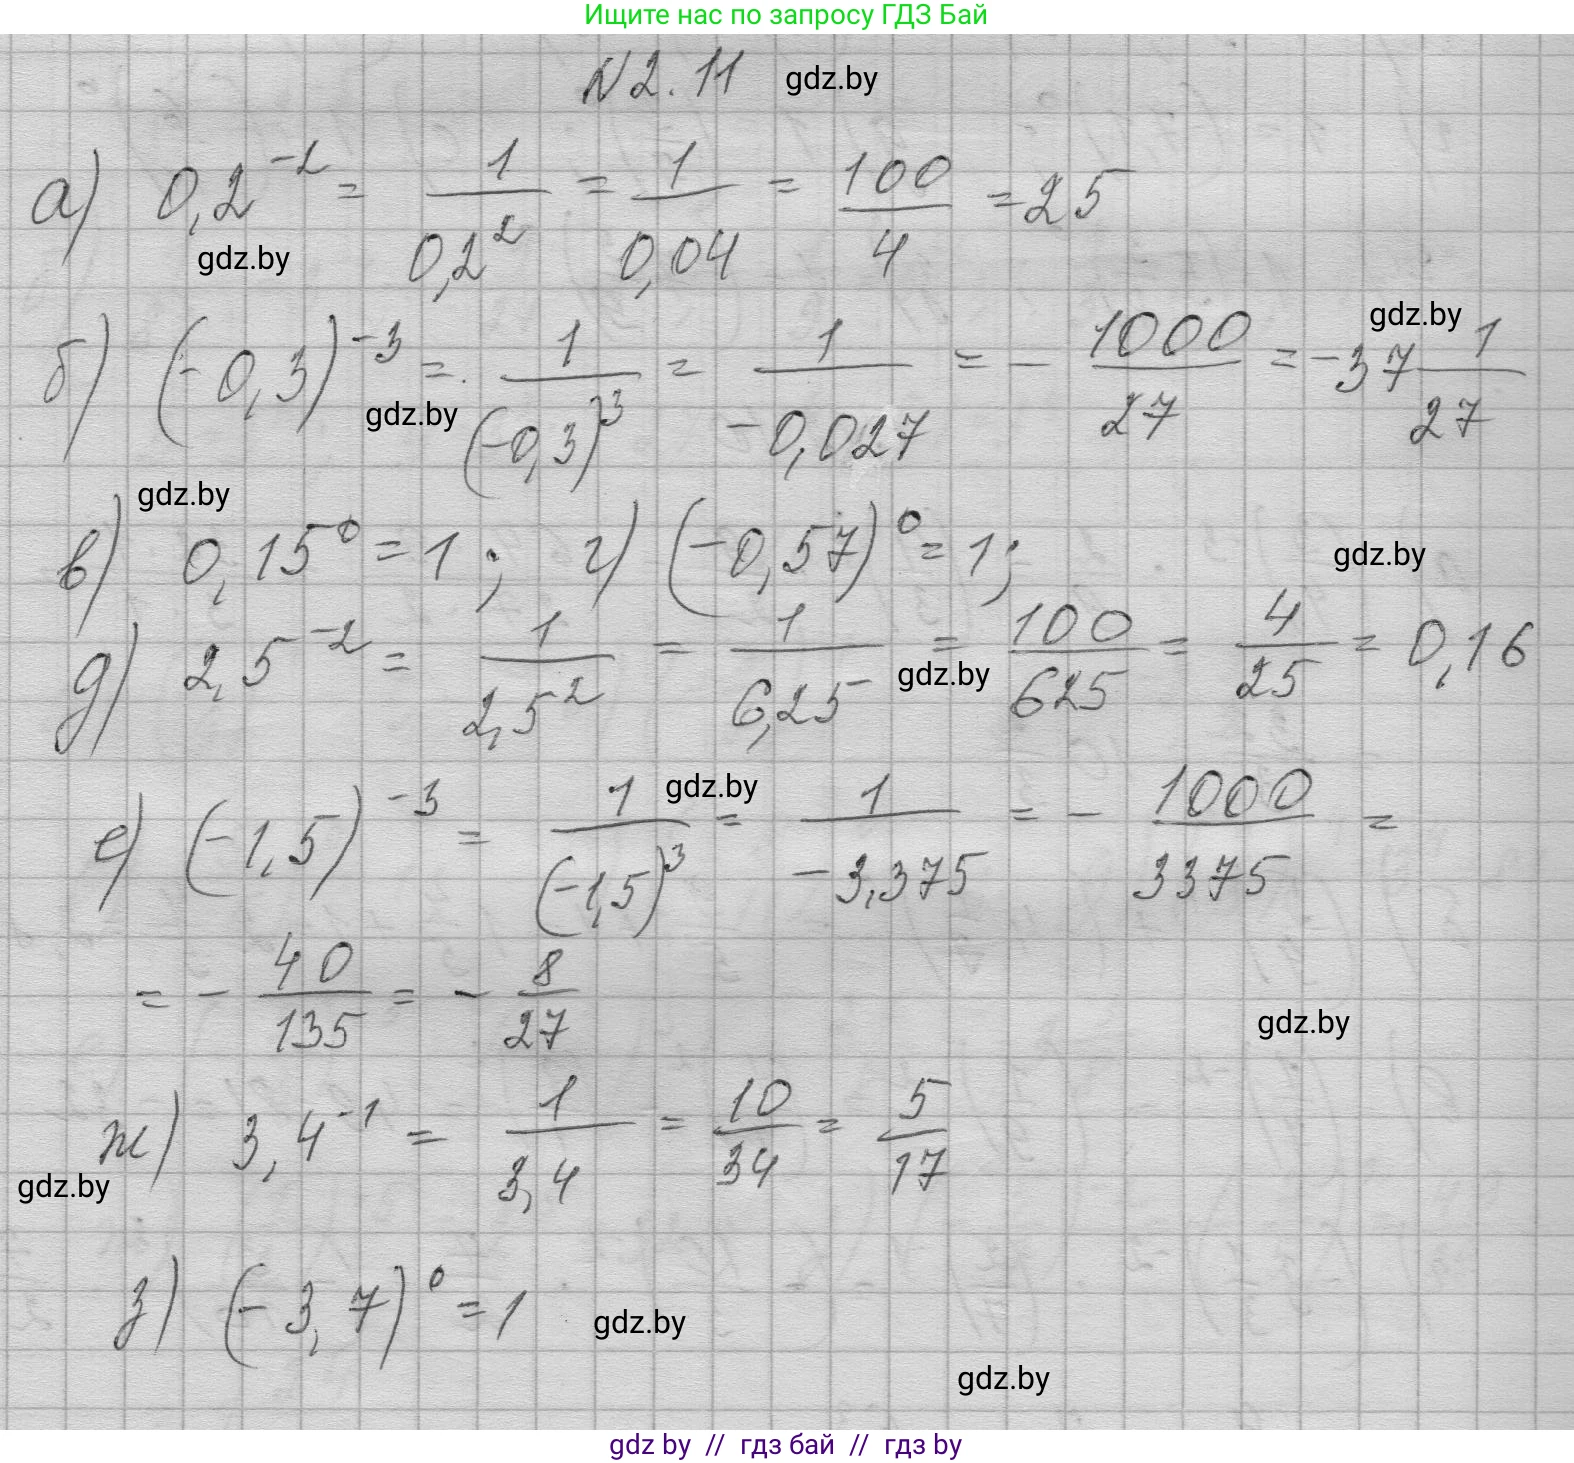 Ищите нас по запросу ГДЗ Бай
N 2.11 gdz.by
а) 0,2^{-2} = \frac{1}{0,2^2} = \frac{1}{0,04} = \frac{100}{4} = 25
gdz.by
gdz.by
б) (-0,3)^{-3} = \frac{1}{(-0,3)^3} = \frac{1}{-0,027} = -\frac{1000}{27} = -37\frac{1}{27}
gdz.by
gdz.by
в) 0,15^0 = 1; г) (-0,57)^0 = 1;
gdz.by
д) 2,5^{-2} = \frac{1}{2,5^2} = \frac{1}{6,25} = \frac{100}{625} = \frac{4}{25} = 0,16
gdz.by
gdz.by
е) (-1,5)^{-3} = \frac{1}{(-1,5)^3} = \frac{1}{-3,375} = -\frac{1000}{3375} =
= -\frac{40}{135} = -\frac{8}{27}
gdz.by
ж) 3,4^{-1} = \frac{1}{3,4} = \frac{10}{34} = \frac{5}{17}
gdz.by
з) (-3,7)^0 = 1
gdz.by
gdz.by
gdz by // гдз бай // гдз by